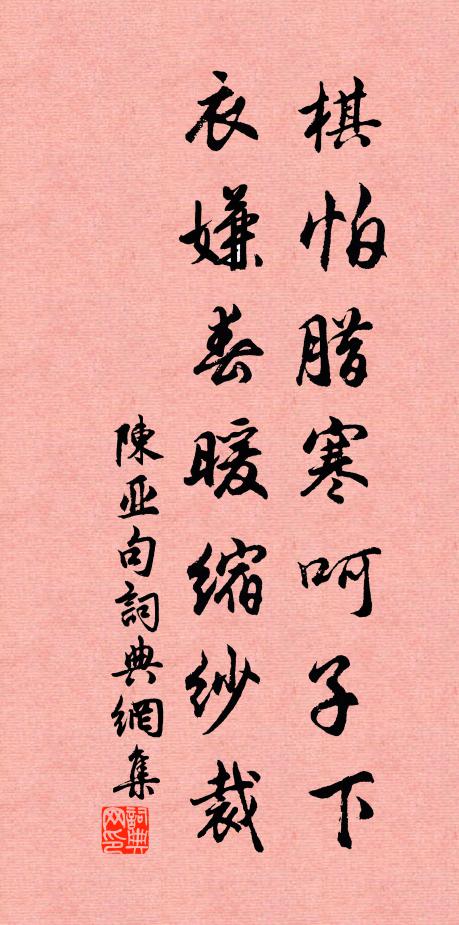 棋怕腊寒呵子下
衣嫌春暖缩纱裁
陳亚句詞典網集
詞典网印